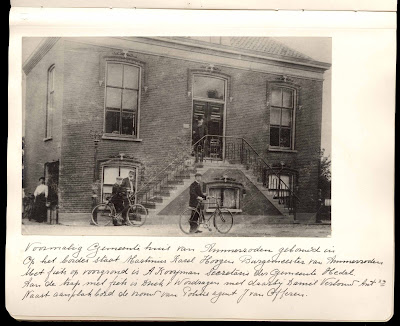 Voormalig Gemeente huis van Ammerzoden gebouwd in
Op het bordes staat Martinus Karel Hoogen Burgemeester van Ammerzoden
Met fiets op voorgrond is A Kooyman Secretaris der Gemeente Hedel
Aan de trap met fiets is Wordragen met daarbij Daniel Verbouw
Naast aanplakbord de vrouw van Politie agent J van Offeren.